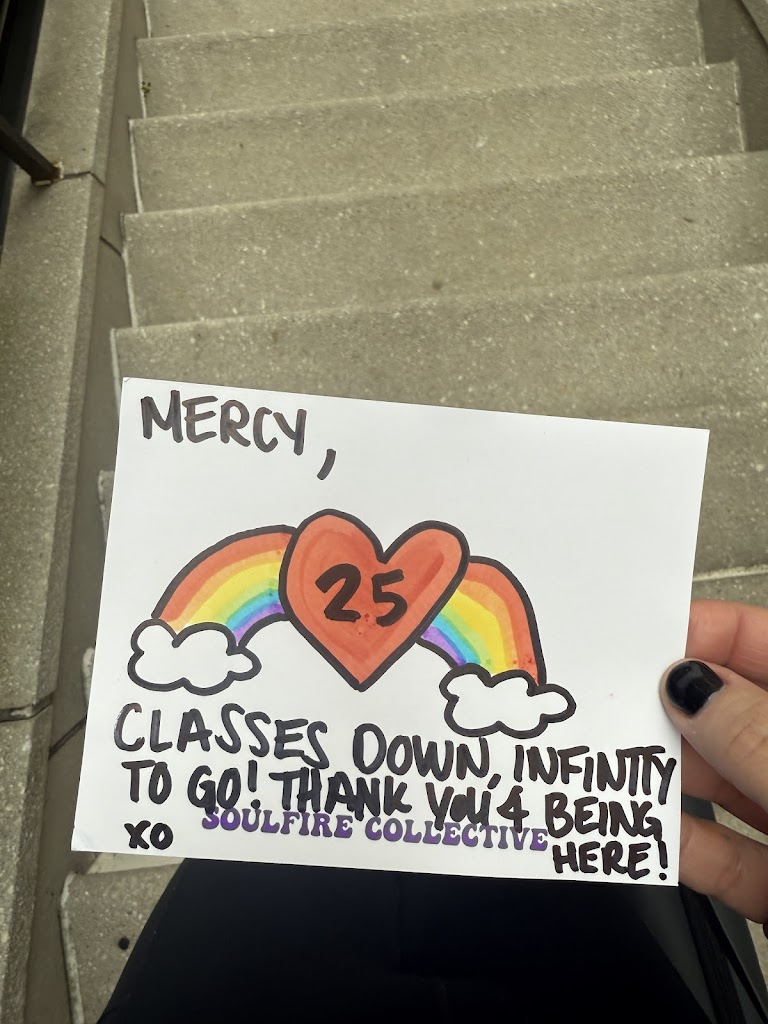 MERCY,
25
CLASSES DOWN, INFINITY
TO GO! THANK YOU 4 BEING
HERE!
XO
SOULFIRE COLLECTIVE